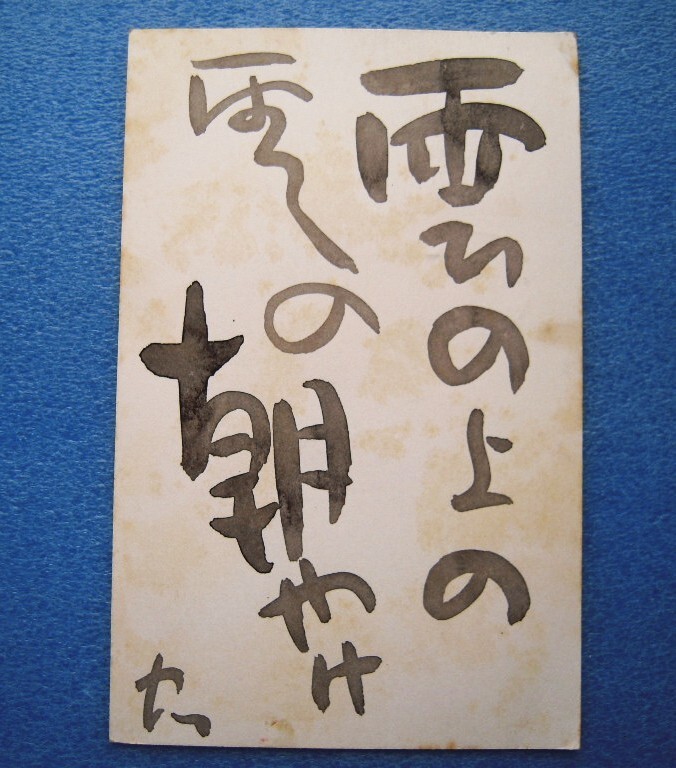 雲の上の
雲の朝やけ
た